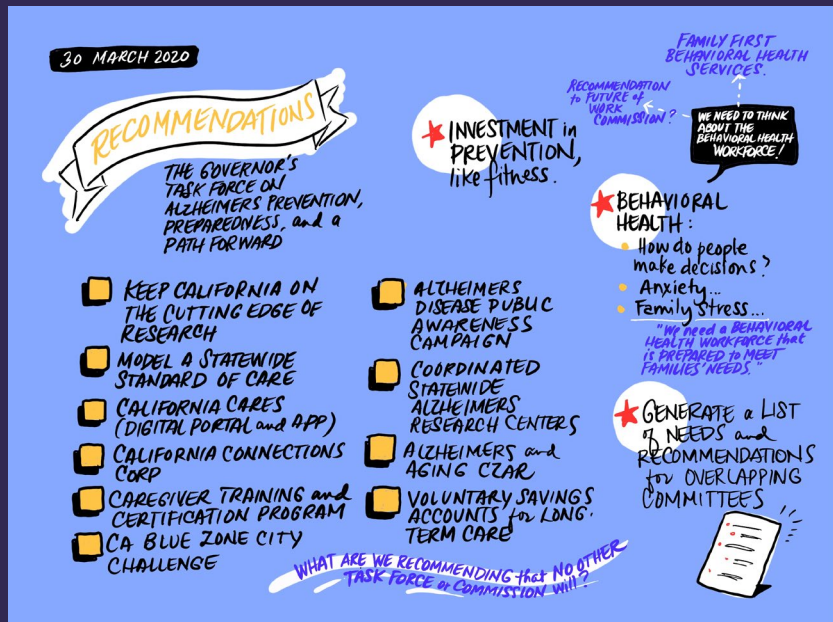 30 MARCH 2020
RECOMMENDATIONS
THE GOVERNOR'S
TASK FORCE ON
ALZHEIMERS PREVENTION,
PREPAREDNESS, and a
PATH FORWARD
KEEP CALIFORNIA ON
THE CUTTING EDGE OF
RESEARCH
MODEL A STATEWIDE
STANDARD OF CARE
CALIFORNIA CARES
(DIGITAL PORTAL and APP)
CALIFORNIA CONNECTIONS
CORP
CAREGIVER TRAINING and
CERTIFICATION PROGRAM
CA BLUE ZONE CITY
CHALLENGE
ALZHEIMERS
DISEASE PUBLIC
AWARENESS
CAMPAIGN
COORDINATED
STATEWIDE
ALZHEIMERS
RESEARCH CENTERS
ALZHEIMERS and
AGING CZAR
VOLUNTARY SAVINGS
ACCOUNTS for LONG-
TERM CARE
WHAT ARE WE RECOMMENDING that NO OTHER
TASK FORCE or COMMISSION will?
INVESTMENT in
PREVENTION,
like fitness.
FAMILY FIRST
BEHAVIORAL HEALTH
SERVICES.
RECOMMENDATION
to FUTURE of
WORK
COMMISSION?
WE NEED TO THINK
ABOUT THE
BEHAVIORAL HEALTH
WORKFORCE!
BEHAVIORAL
HEALTH:
How do people
make decisions?
Anxiety...
Family Stress...
"We need a BEHAVIORAL
HEALTH WORKFORCE that
is PREPARED to MEET
FAMILIES' NEEDS."
GENERATE a LIST
of NEEDS and
RECOMMENDATIONS
for OVERLAPPING
COMMITTEES